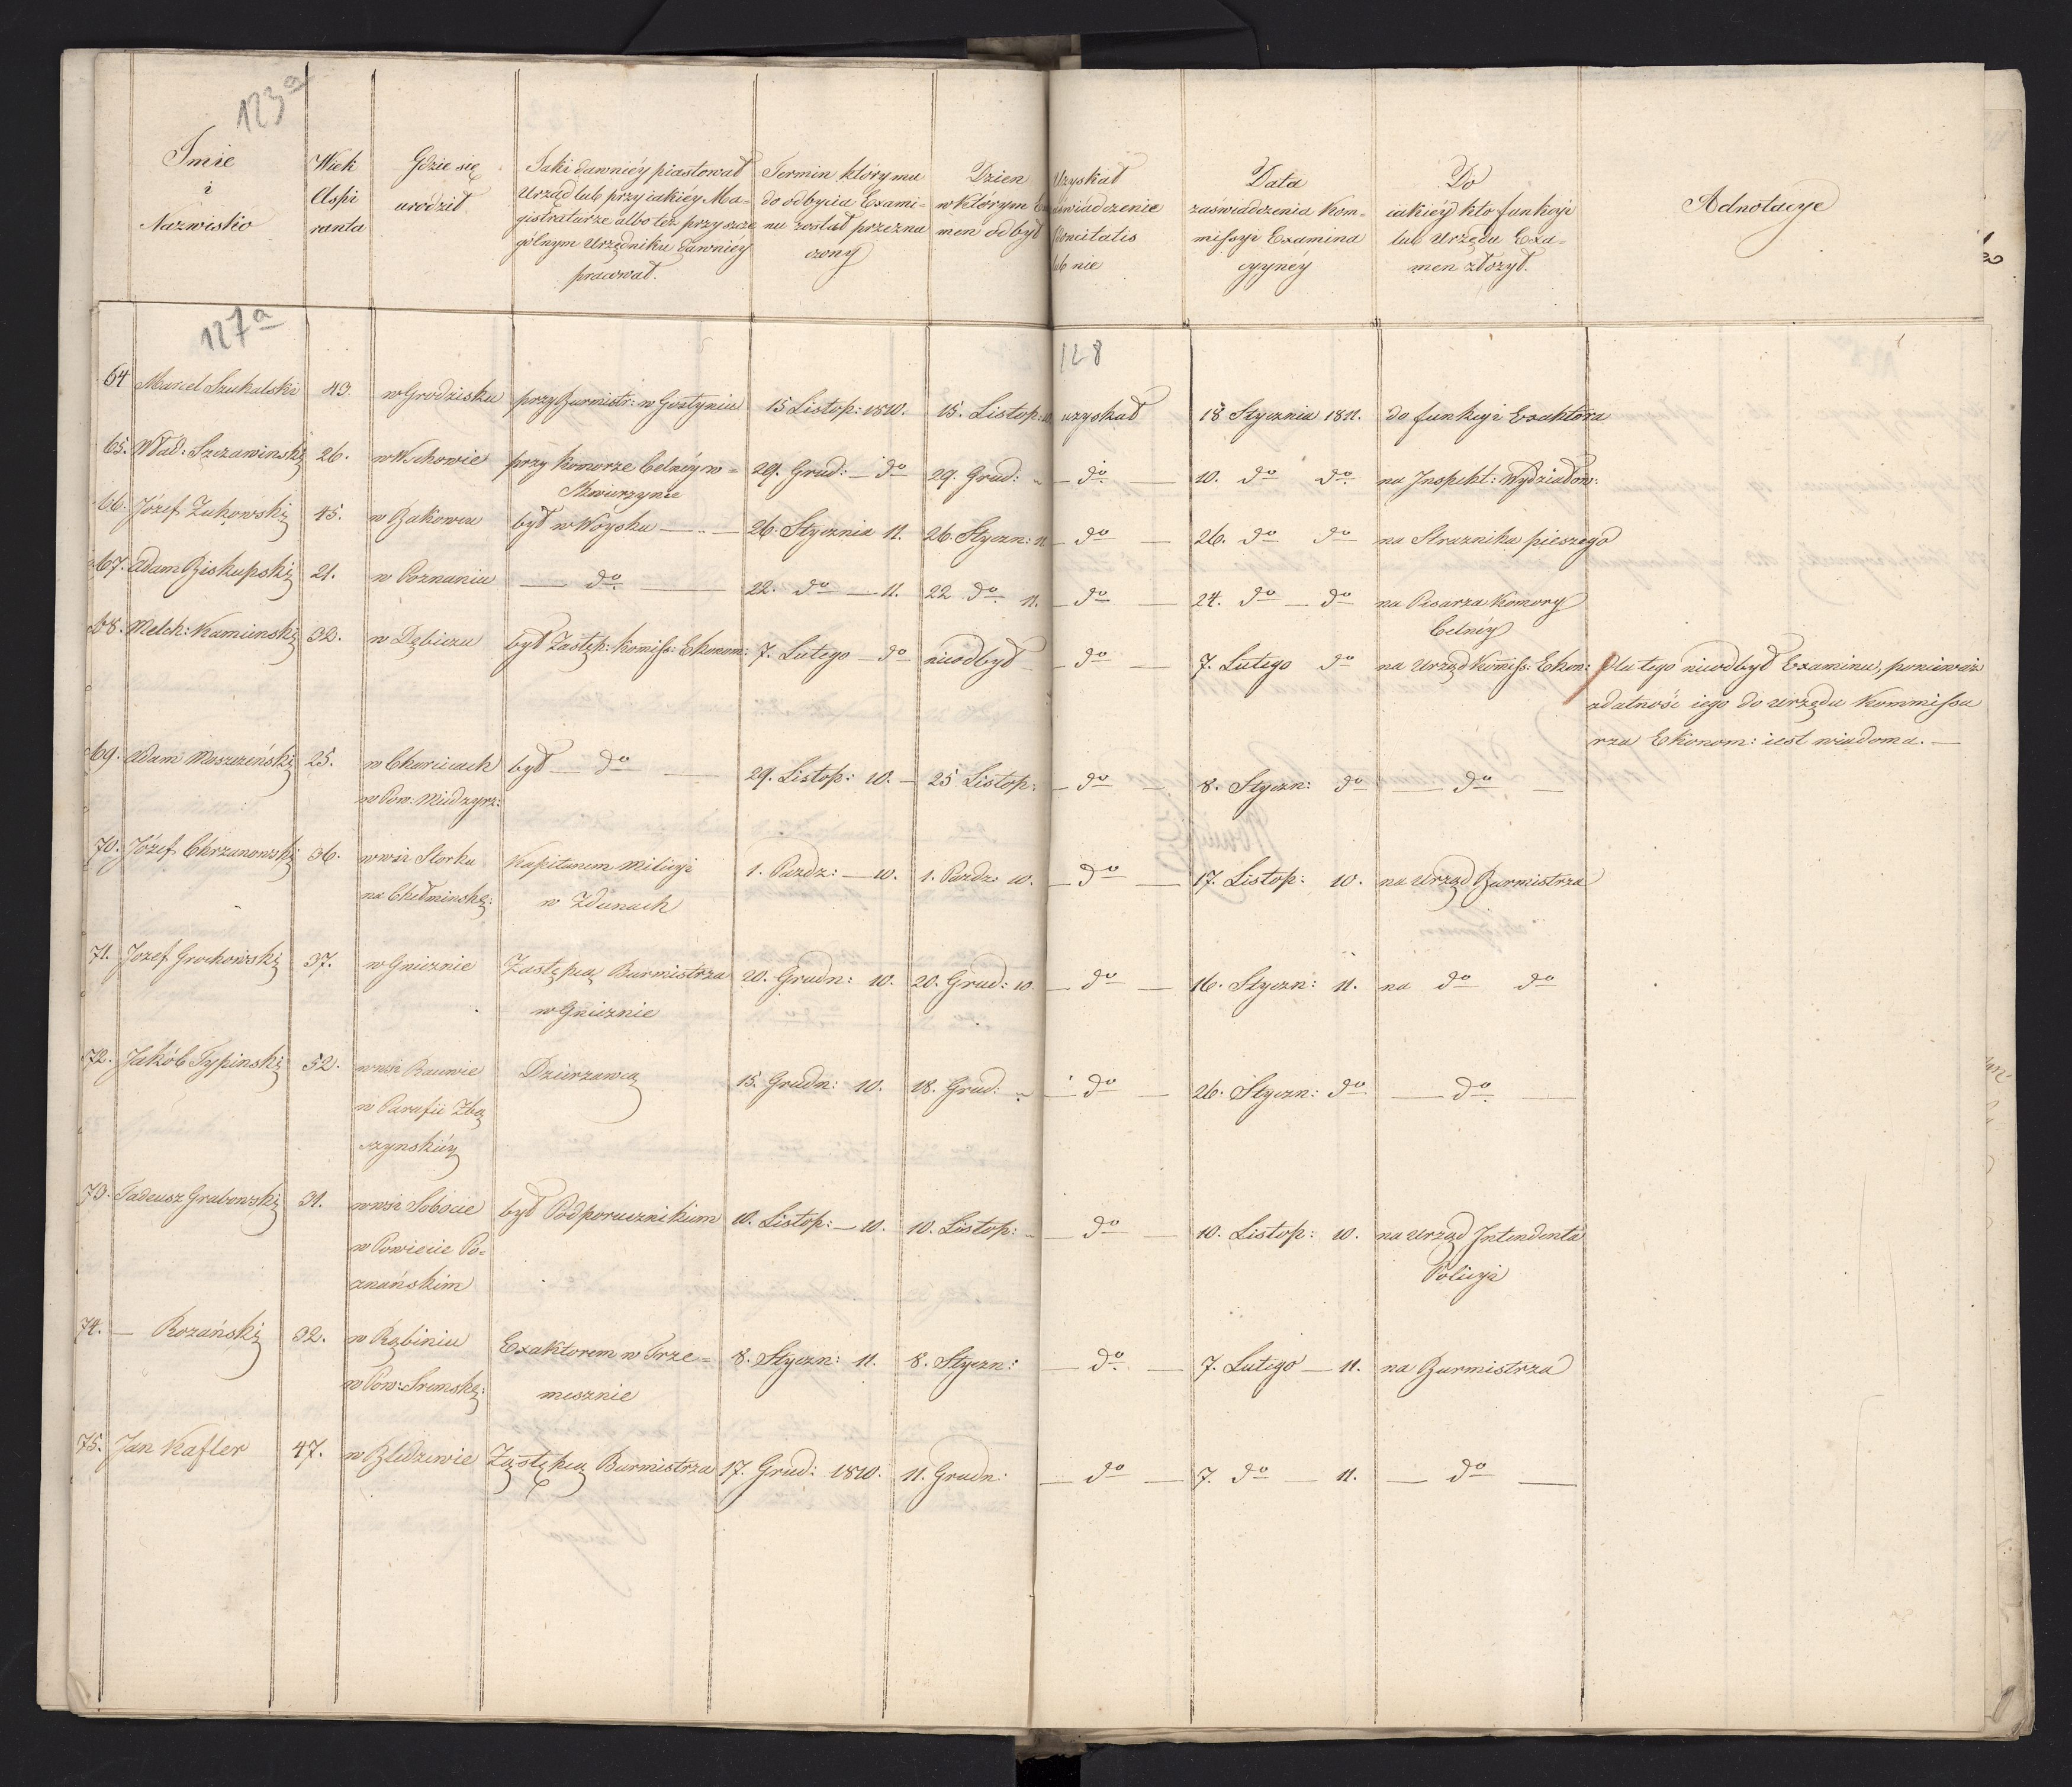 123a
Imie
i
Nazwisko
Wiek
Aspi
ranta
Gdzie się
urodził
Jaki dawniéy piastował
Urząd lub przy iakiéy Ma=
gistraturze albo też przy szcze
gólnym Urzędniku dawniey
pracował.
Termin który mu
do odbycia Exami=
nu został przezna
czony
Dzien
w którym Exa
men odbył
Uzyskał
zaświadczenie
lub nie
Data
zaświadczenia Kom=
missyi Examina
cyynéy
Do
iakiéy kto funkcyi
lub Urzędu Exa=
men złożył.
Adnotacye
127a
128
64 Marcel Szukalski 43. w Grodzisku przy Burmistr: w Gostyniu 15 Listop: 1810. 15. Listop: 10. uzyskał 18 Stycznia 1811. do funkcyi Exaktora
65. Wład: Szczawinski 26. w Wschowie przy Komorze Celnéy w= 29. Grud: — do 29. Grud: " — do — 10. do do na Inspekt: Wydziałow:
Skwierzynie
66. Józef Zukowski 45. w Bukowcu był w Woysku — " — 26. Stycznia 11. 26. Styczn: 11 — do — 26. do do na Straznika pieszego
67. Adam Biskupski 21. w Poznaniu — do — 22. do — 11. 22 do 11. — do — 24. do — do na Pisarza Komory
Celnéy
68. Melch: Kamienski 32. w Dębiczu był Zastęp: Komiss: Ekonom: 7. Lutego — do nieodbył — do — 7. Lutego do na Urząd Komiss: Ekon: Dla tego nieodbył Examinu, ponieważ
zdatność iego do urzędu Kommissa
rza Ekonom: iest wiadoma. —
69. Adam Moszczeński 25. w Choricach był — do — 29. Listop: 10. — 25 Listop: — do — 8. Styczn: do — do —
w Pow: Miedzyrz:
70. Józef Chrzanowski 36. w wsi Storku Kapitanem Milicyi 1. Pazdz: — 10. 1. Pazdz: 10. — do — 17. Listop: 10. na Urząd Burmistrza
na Chełminskę: w Zdunach
71. Jozef Grochowski 37. w Gnieznie Zastępcą Burmistrza 20. Grudn: 10. 20. Grud: 10. — do — 16. Styczn: 11. na do do
w Gnieznie
72. Jakób Typinski 52. w wsi Dzierzawcą 15. Grudn: 10. 18. Grud: " — do — 26. Styczn: do — do —
w Parafii Zbą
szynskiéy
73. Tadeusz Grabowski 31. w wsi Sobocie był Podporucznikiem 10. Listop: — 10. 10. Listop: " — do — 10. Listop: 10. na Urząd Intendenta
w Powiecie Po= Policyi
znańskim
74. — Rozański 32. w Rąbiniu Exaktorem w Trze= 8. Styczn: 11. 8. Styczn: — do — 7. Lutego — 11. na Burmistrza
w Pow: Sremskę: mesznie
75. Jan Kafler 47. w Bledzewie Zastępcą Burmistrza 17. Grud: 1810. 11. Grudn: — do — 7. do — 11. — do —